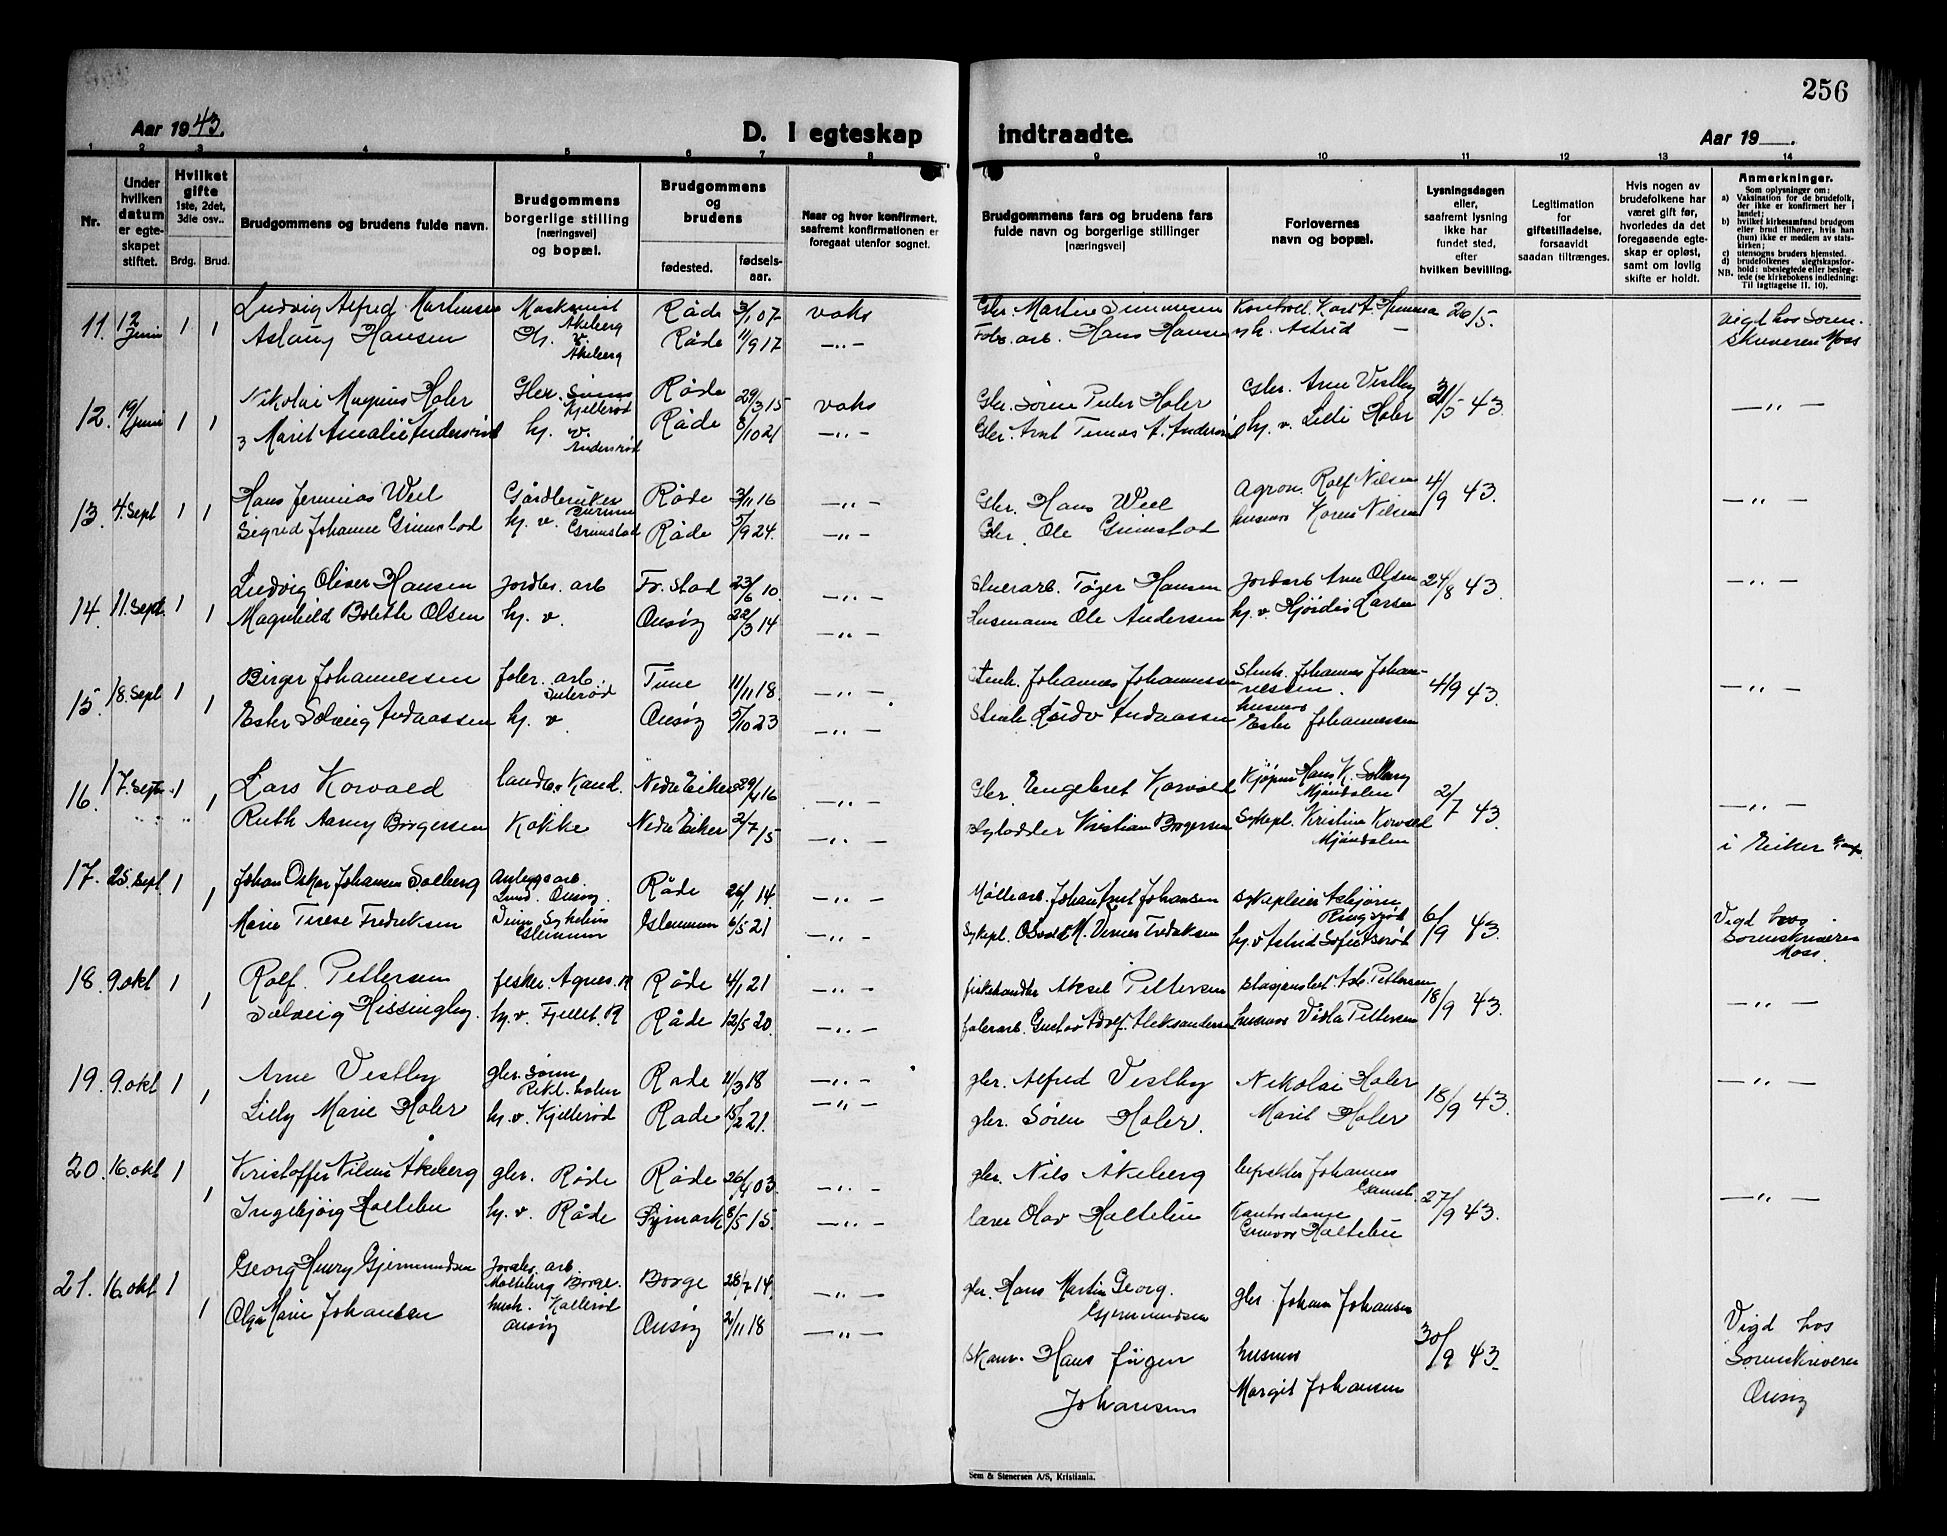 256
Aar 1943.
D. I egteskap indtraadte.
Aar 19 .
1 2 3 4 5 6 7 8 9 10 11 12 13 14
Nr.
Under hvilken datum er egteskapet stiftet.
Hvilket gifte 1ste, 2det, 3die osv..
Brdg. Brud.
Brudgommens og brudens fulde navn.
Brudgommens borgerlige stilling (næringsvei) og bopæl.
Brudgommens og brudens
fødested. fødselsaar.
Naar og hvor konfirmert, saafremt konfirmationen er foregaat utenfor sognet.
Brudgommens fars og brudens fars fulde navn og borgerlige stillinger (næringsvei)
Forlovernes navn og bopæl.
Lysningsdagen eller, saafremt lysning ikke har fundet sted, efter hvilken bevilling.
Legitimation for giftetilladelse, forsaavidt saadan tiltrænges.
Hvis nogen av brudefolkene har været gift før, hvorledes da det foregaaende egteskap er opløst, samt om lovlig skifte er holdt.
Anmerkninger.
Som oplysninger om:
a) Vaksination for de brudefolk, der ikke er konfirmert her i landet;
b) hvilket kirkesamfund brudgom eller brud tilhører, hvis han (hun) ikke er medlem av statskirken;
c) utensogns bruders hjemsted.
d) brudefolkenes slegtskapsforhold: ubeslegtede eller beslegtede (se kirkebokens indledning: Til Iagttagelse II. 10).
NB.
11. 12 Juni 1 Ludvig Alfred Martinsen Råde 3/1 07 vaks Gbr. Martin Simensen 26/5. Vigd hos Soren-
1 Aslaug Hansen Hj. v. Akeberg Råde 11/9 17 —„— arb. Hans Hansen hj. Astrid — skriveren Moss
12. 19/Juni 1 Nikolai Magnus Holer Gbr. Råde 29/3 15 vaks Gbr. Søren Peder Holer Gbr. Arne Vestby 31/5 43. —„—
1 Marit Amalie Andersrød hj. v. Andersrød Råde 8/10 21 —„— Gbr. Arnt hj. v. Lilli Holer
13. 4. Sept 1 Hans Jermias Weel Gårdbruker Råde 3/11 16 —„— Gbr. Hans Weel Agron. Rolf Nilsen 4/9 43. —„—
1 Sigrid Johanne Grimstad hj. v. Grimstad Råde 5/9 24. —„— Gbr. Ole Grimstad husmor Karen Nilsen
14. 11. Sept. 1 Ludvig Oliver Hansen Jordbr. arb Fr. stad 23/6 10. —„— Hansen Jordarb Arne Olsen 24/8 43. —„—
1 Magnhild Bolette Olsen hj. v. Onsøy 22/3 14 —„— Husmann Ole Andersen hj. v Hjørdis Larsen
15. 18. Sept 1 Birger Johannessen arb. Tune 11/11 18. —„— Stenh. Johannes Johannessen Stenh. Johannes Johannessen. 4/9 43. —„—
1 Ester Solveig hj. v. Onsøy 5/10 23 —„— husmor Ester Johannessen
16. 17. Sept. 1 Lars Korvald landbr. Kand. Nedre Eiker 29/4 16 —„— Gbr. Engebret Korvald Kjøpm Hans K. Solberg Mjøndalen 2/7 43. —„—
1 Ruth Aarny Borgersen Kokke Nedre Eiker 3/7 15 —„— Kristian Borgersen Sykepl. Kristine Korvald Mjøndalen i Eiker
17. 25. Sept 1 Johan Oskar Johansen Solberg Anlegsarb Lund. Onsøy Råde 26/1 14. —„— Møllearb. Johan Arnt Johansen Sykepleier Asbjørn 6/9 43. Vigd hos
1 Marie Terese Fredriksen Glemmen Glemmen 6/5 21 —„— Sykepl. Fredriksen hj. v Astrid Sofie Sorenskriveren Moss.
18. 9. okt 1 Rolf Pettersen fisker. Råde 4/1 21 —„— fiskehandler Aksel Pettersen Pettersen 18/9 43. —„—
1 Solveig Hissingby. hj. v. Fjellet. R Råde 12/5 20. —„— Gustav Adolf Aleksandersen husmor Pettersen
19. 9. okt 1 Arne Vestby gbr. sønn Råde 11/3 18 —„— gbr. Alfred Vestby Nikolai Holer 18/9 43. —„—
1 Lilly Marie Holer hj. v. Kjellerød Råde 15/2 21. —„— gbr. Søren Holer. Marit Holer
20. 16. okt 1 Kristoffer Nilsen Åkeberg gbr. Råde Råde 26/4 03. —„— gbr. Nils Åkeberg Johannes 27/9 43. —„—
1 Ingebjørg Holtebu hj. v. Råde 8/5 15. —„— lærer Olav Holtebu Kontordame Gunvor Holtebu
21. 16. okt 1 Georg Henry Gjermundsen Jordbr. arb. Borge. Borge 28/7 14. —„— gbr. Hans Martin Georg. Gjermundsen gbr. Johan Johansen 30/9 43. Vigd hos
1 Olga Marie Johansen hush. Kallerød Onsøy Onsøy 2/11 18 —„— Hans Jørgen Johansen husmor Margit Johansen Sorenskriveren Onsøy
Sem & Stenersen A/S, Kristiania.